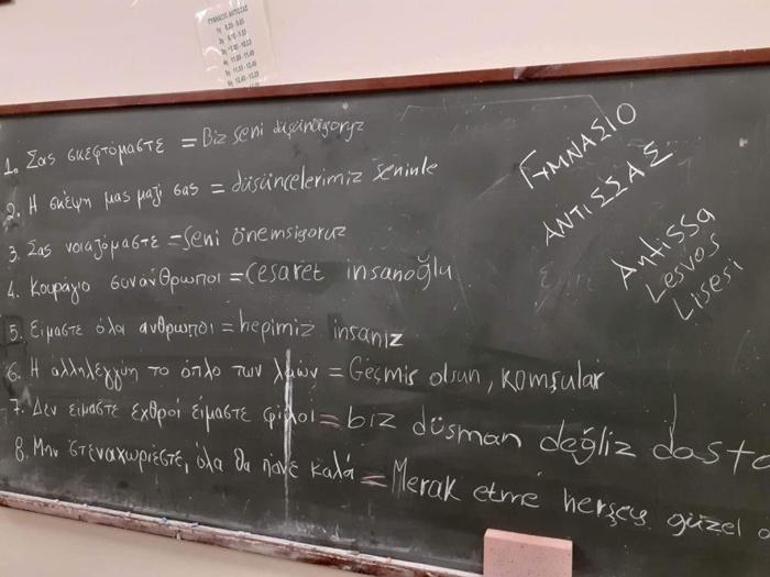 ΓΥΜΝΑΣΙΟ ΑΝΤΙΣΣΑΣ
1. Σας σκεφτόμαστε = Biz seni düşünüyoryz
2. Η σκέψη μας μαζί σας = düşüncelerimiz seninle
3. Σας νοιαζόμαστε = Seni önemsiyoruz
4. Κουράγιο συνάνθρωποι = Cesaret insanoğlu
5. Είμαστε όλοι ανθρωποι = hepimiz insanız
6. Η αλληλεγγύη το όπλο των λαών = Geçmis olsun, komşular
7. Δεν είμαστε εχθροί είμαστε φίλοι = biz düsman değliz dosta
8. Μην στεναχωριέστε, όλα θα πάνε καλά = Merak etme herşey güzel o
ΓΥΜΝΑΣΙΟ
ΑΝΤΙΣΣΑΣ
Antissa
Lesvos
Lisesi